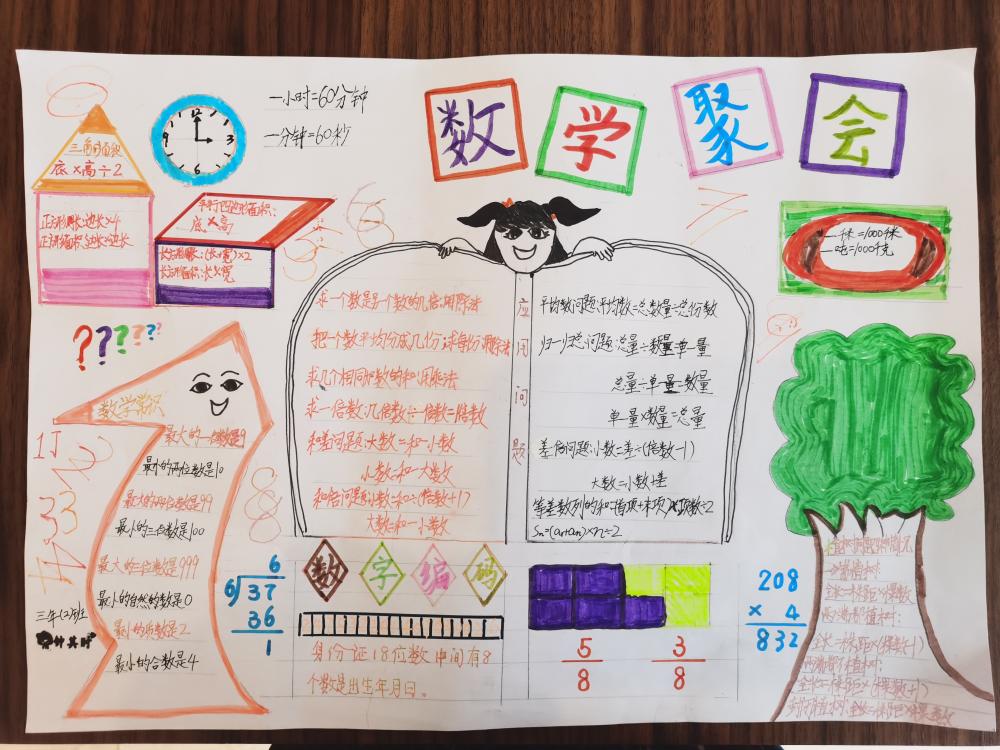 数学聚会
一小时=60分钟
一分钟=60秒
12
3
6
9
三角形面积
底×高÷2
正方形周长:边长×4
正方形面积:边长×边长
平行四边形面积:
底×高
长方形周长:(长+宽)×2
长方形面积:长×宽
一千米=1000米
一吨=1000千克
??????
数学常识
最大的一位数是9
最小的两位数是10
最大的两位数是99
最小的三位数是100
最大的三位数是999
最小的自然的数是0
最小的质数是2
最小的合数是4
三年(2)班
应用问题
求一个数是另个数的几倍:用除法
把一个数平均分成几份:求每份:用除法
求几个相同加数的和:用乘法
求一倍数:几倍数÷一倍数=倍数
和差问题:大数=和-小数
小数=和-大数
和倍问题:小数=和÷(倍数+1)
大数=和-小数
平均数问题:平均数=总数量÷总份数
归一归总问题:总量÷数量=单一量
总量÷单一量=数量
单一量×数量=总量
差倍问题:小数=差÷(倍数-1)
大数=小数+差
等差数列的和=(首项+末项)×项数÷2
Sn=(a1+an)×n÷2
6
6 37
36
1
数字编码
身份证18位数中间有8
个数是出生年月日。
5/8
3/8
208
× 4
832
全长=株距×(棵数-1)
全长=株距×(棵数+1)